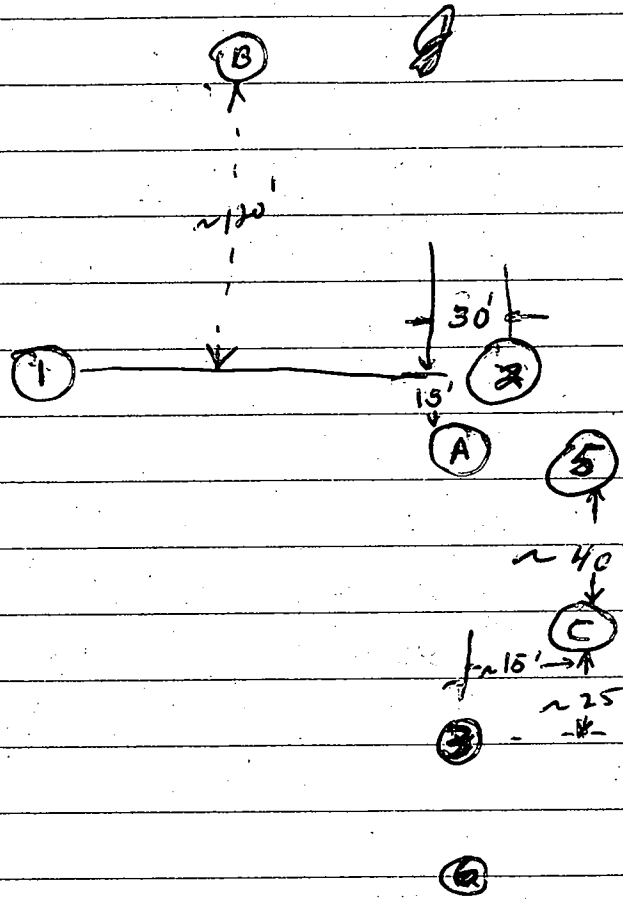 B
~120'
30'
1
2
15'
A
5
~40
C
~15'
~25
3
6